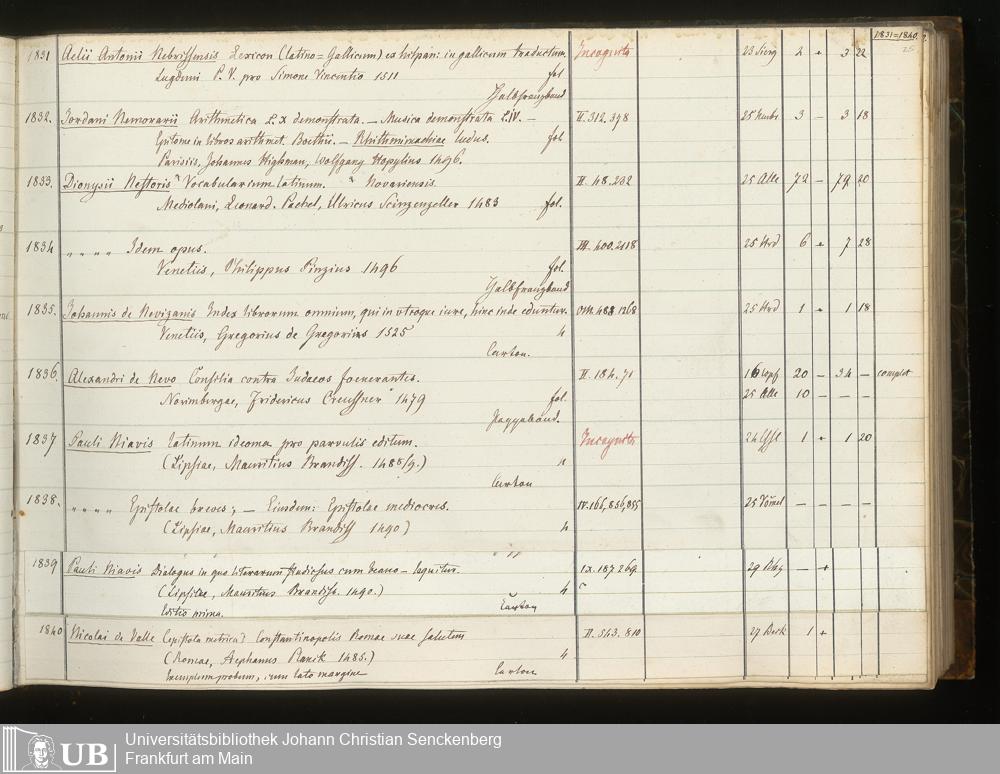 1831=1840.
25
1831 Aelii Antonii Nebrissensis Lexicon (latino=Gallicum) ex hispan: in gallicum traductum. Incognita 2 + 3 22
Lugduni P. V. pro Simone Vincentio 1511 fol.
Halbfranzband
1832. Jordani Nemorarii Arithmetica L. X demonstrata. — Musica demonstrata L. IV. — II. 312. 398 3 — 3 18
Epitome in libros arithmet. Boethii. — Rhithmimachiae ludus. fol
Parisiis, Johannes Higman, Wolfgang Hopylius 1496.
1833. Dionysii Nestoris Vocabularium latinum. Novariensis. II. 48. 232 25 Alte 72 — 79 20
Mediolani, Leonard. Pachel, Ulricus Scinzenzeller 1483 fol.
1834 " " " " Idem opus. III. 400. 2118 25 Hrd 6 + 7 28
Venetiis, Philippus Pinzius 1496 fol.
Halbfranzband
1835. Johannis de Nevizanis Index librorum omnium, qui in utroque iure, hinc inde eduntur. 25 Hrd 1 + 1 18
Venetiis, Gregorius de Gregoriis 1525 4
Carton.
1836. Alexandri de Nevo Consilia contra Judaeos foenerantes. II. 184. 71 20 — 34 — complet
Norimbergae, Fridericus Creussner 1479 fol. 25 Alte 10 — — —
Pappband.
1837 Pauli Niavis latinum ideoma pro parvulis editum. Incognita 1 + 1 20
(Lipsiae, Mauritius Brandiss. 1488/9.) 4
Carton
1838. " " " " Epistolae breves; — Eiusdem: Epistolae mediocres. IV. 166, 856, 855 — — — —
(Lipsiae, Mauritius Brandiss 1490) 4
1839 Pauli Niavis Dialogus in quo literarum studiosus cum beano — loquitur. IX. 187 269. — +
(Lipsiae, Mauritius Brandiss. 1490.) 4
Editio prima. Carton
1840 Nicolai de Valle (epistola metrica) Constantinopolis Romae suae salutem II. 543. 810 27 Beck 1 +
(Romae, Stephanus Planck 1485.) 4
Exemplum probum, cum lato margine Carton
UB
Universitätsbibliothek Johann Christian Senckenberg
Frankfurt am Main